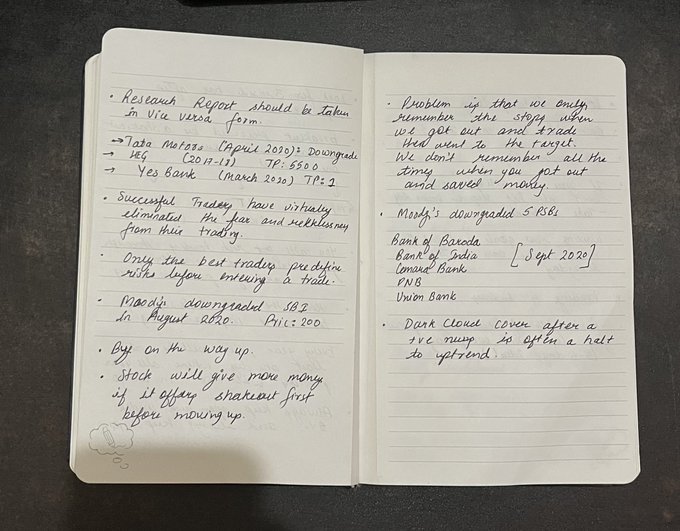 • Research Report should be taken
in vice versa form.
→ Tata Motors (April 2020): Downgrade
→ HEG (2017-18) TP: 5500
→ Yes Bank (March 2020) TP: 1
• Successful Traders have virtually
eliminated the fear and recklessness
from their trading.
• Only the best traders predefine
risks before entering a trade.
• Moody's downgraded SBI
in August 2020. Price: 200
• Buy on the way up.
• Stock will give more money
if it offers shakeout first
before moving up.
• Problem is that we only
remember the stops when
we got out and trade
then went to the target.
We don't remember all the
times when you got out
and saved money.
• Moody's downgraded 5 PSBs
Bank of Baroda
Bank of India [Sept 2020]
Canara Bank
PNB
Union Bank
• Dark Cloud cover after a
+ve news is often a halt
to uptrend.